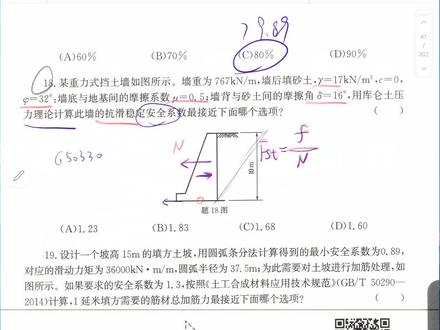 79.89
(A)60% (B)70% (C)80% (D)90%
18. 某重力式挡土墙如图所示。墙重为767kN/m,墙后填砂土,γ=17kN/m³,c=0,
φ=32°;墙底与地基间的摩擦系数μ=0.5;墙背与砂土间的摩擦角δ=16°,用库仑土压
力理论计算此墙的抗滑稳定安全系数最接近下面哪个选项? ( )
G50330
N
Fst = f/N
10m
题18图
(A)1.23 (B)1.83 (C)1.68 (D)1.60
19. 设计一个坡高15m的填方土坡,用圆弧条分法计算得到的最小安全系数为0.89,
对应的滑动力矩为36000kN·m/m,圆弧半径为37.5m;为此需要对土坡进行加筋处理,如
图所示。如果要求的安全系数为1.3,按照《土工合成材料应用技术规范》(GB/T 50290—
2014)计算,1延米填方需要的筋材总加筋力最接近下面哪个选项? ( )
41
202